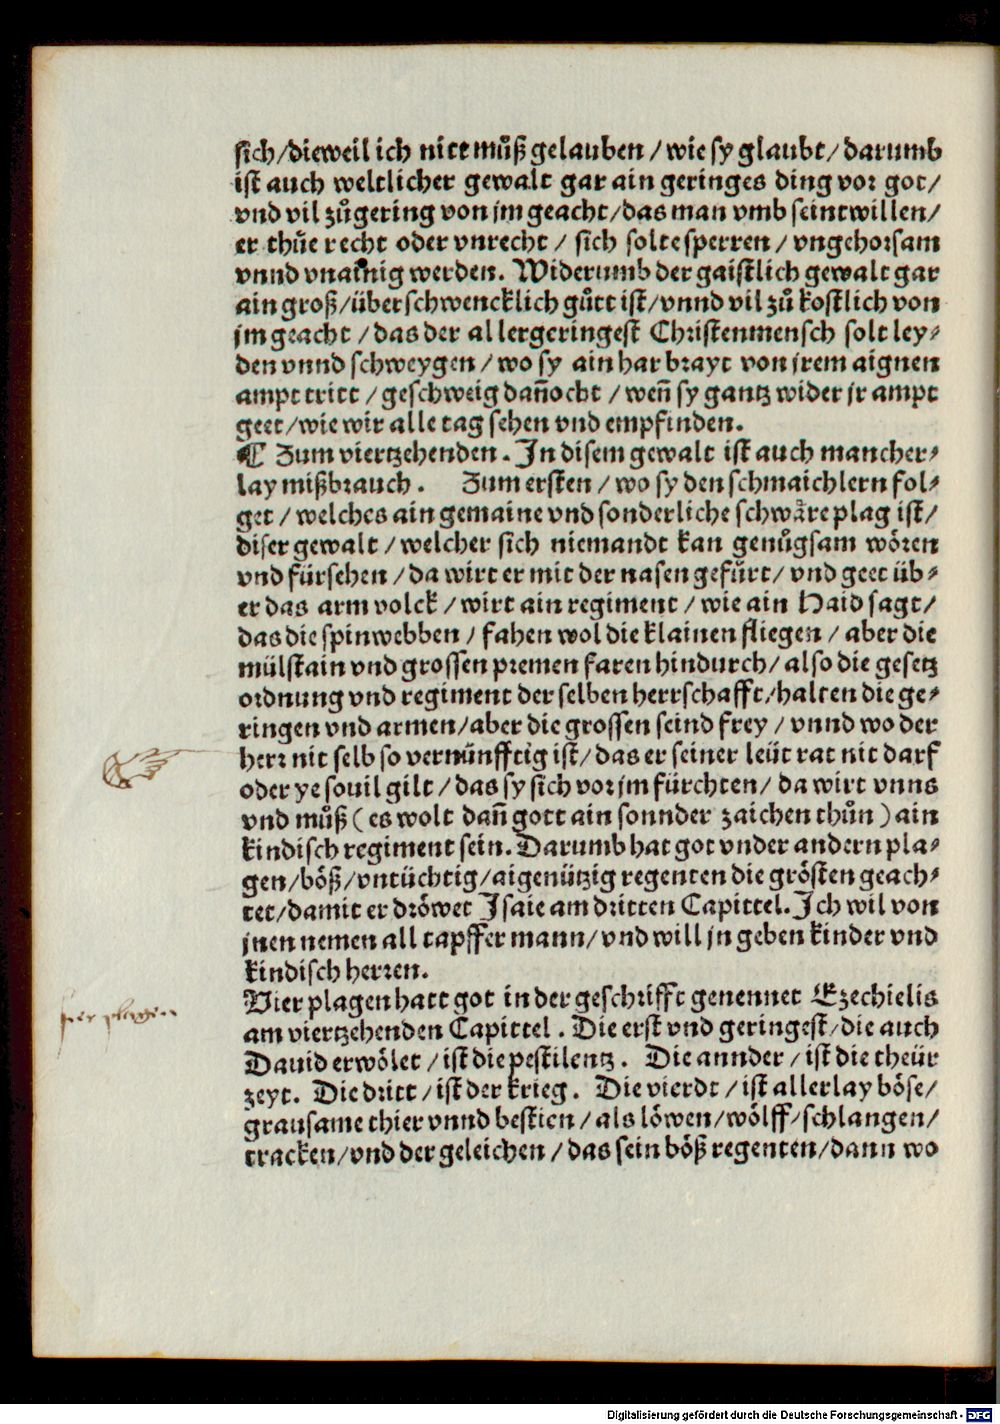 sich/dieweil ich nitt můß gelauben / wie sy glaubt/ darumb
ist auch weltlicher gewalt gar ain geringes ding vor got/
vnd vil zůgering von jm geacht/das man vmb seintwillen/
er thůe recht oder vnrecht / sich solte sperren / vngehorsam
vnnd vnainig werden. Widerumb der gaistlich gewalt gar
ain groß/überschwencklich gůtt ist/vnnd vil zů kostlich von
jm geacht / das der allergeringest Christenmensch solt ley⸗
den vnnd schweygen / wo sy ain har brayt von jrem aignen
ampt tritt / geschweig dañocht / weñ sy gantz wider jr ampt
geet/wie wir alle tag sehen vnd empfinden.
¶ Zum viertzehenden. In disem gewalt ist auch mancher⸗
lay mißbrauch. Zum ersten / wo sy den schmaichlern fol⸗
get / welches ain gemaine vnd sonderliche schwäre plag ist/
diser gewalt / welcher sich niemandt kan genůgsam wören
vnd fürsehen / da wirt er mit der nasen gefůrt/ vnd geet üb⸗
er das arm volck / wirt ain regiment / wie ain Haid sagt/
das die spinwebben / fahen wol die klainen fliegen / aber die
mülstain vnd grossen premen faren hindurch/ also die gesetz
ordnung vnd regiment der selben herrschafft/halten die ge⸗
ringen vnd armen/aber die grossen seind frey / vnnd wo der
herr nit selb so vernünfftig ist/ das er seiner leüt rat nit darf
oder ye souil gilt / das sy sich vor jm fürchten/ da wirt vnns
vnd můß ( es wolt dañ gott ain sonnder zaichen thůn ) ain
kindisch regiment sein. Darumb hat got vnder andern pla⸗
gen/böß/vntüchtig/aigenützig regenten die grösten geach⸗
tet/damit er dröwet Isaie am dritten Capittel. Ich wil von
jnen nemen all tapffer mann/ vnd will jn geben kinder vnd
kindisch herren.
Vier plagen hatt got in der geschrifft genennet Ezechielis
am viertzehenden Capittel. Die erst vnd geringest/die auch
Dauid erwölet / ist die pestilentz. Die annder / ist die theür
zeyt. Die dritt / ist der krieg. Die vierdt / ist allerlay böse/
grausame thier vnnd bestien/ als löwen/wölff/schlangen/
tracken/vnd der geleichen / das sein böß regenten/dann wo
plagen
Digitalisierung gefördert durch die Deutsche Forschungsgemeinschaft - DFG